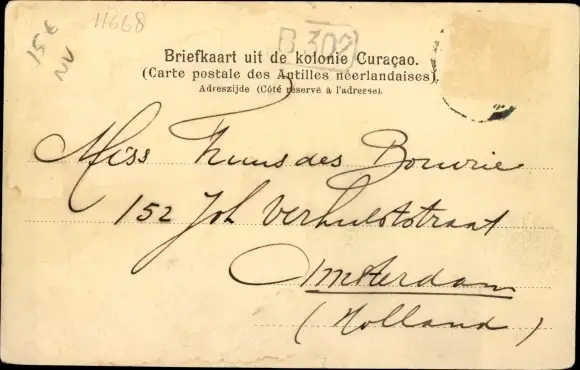 11668
15€
NV
B 302
Briefkaart uit de kolonie Curaçao.
(Carte postale des Antilles néerlandaises).
Adreszijde (Côté réservé à l'adresse).
Miss Truus des Bouvrie
152 Joh Verhulststraat
Amsterdam
(Holland)